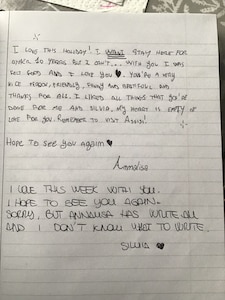 I LOVE THIS HOLIDAY! I WANT STAY HERE FOR
OTHER 10 YEARS BUT I CAN'T... WITH YOU I WAS
FELT GOOD AND I LOVE YOU ♥. YOU'RE A VERY
NICE PERSON, FRIENDLY, FUNNY AND BEATIFULL AND
THANKS FOR ALL. I LIKED ALL THINGS THAT YOU'VE
DONE FOR ME AND SILVIA. MY HEART IS EMPTY OF
LOVE FOR YOU. REMEMBER TO VISIT ASSISI!
HOPE TO SEE YOU AGAIN ♥
Annalisa
I LOVE THIS WEEK WITH YOU.
I HOPE TO SEE YOU AGAIN.
SORRY, BUT ANNALISA HAS WRITE ALL
AND I DON'T KNOW WHAT TO WRITE.
SILVIA ♥